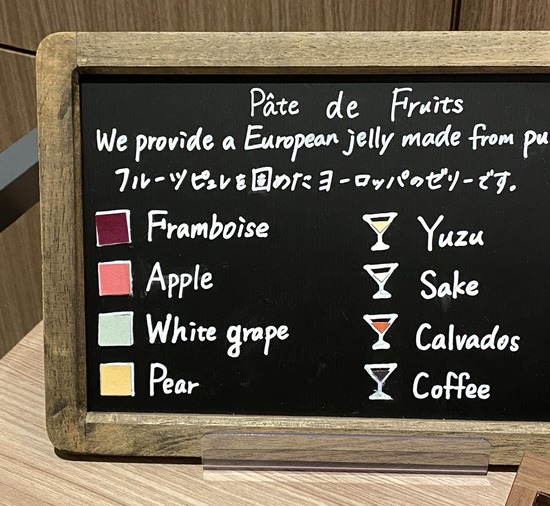 Pâte de Fruits
We provide a European jelly made from pu
フルーツピュレを固めたヨーロッパのゼリーです。
Framboise
Yuzu
Apple
Sake
White grape
Calvados
Pear
Coffee